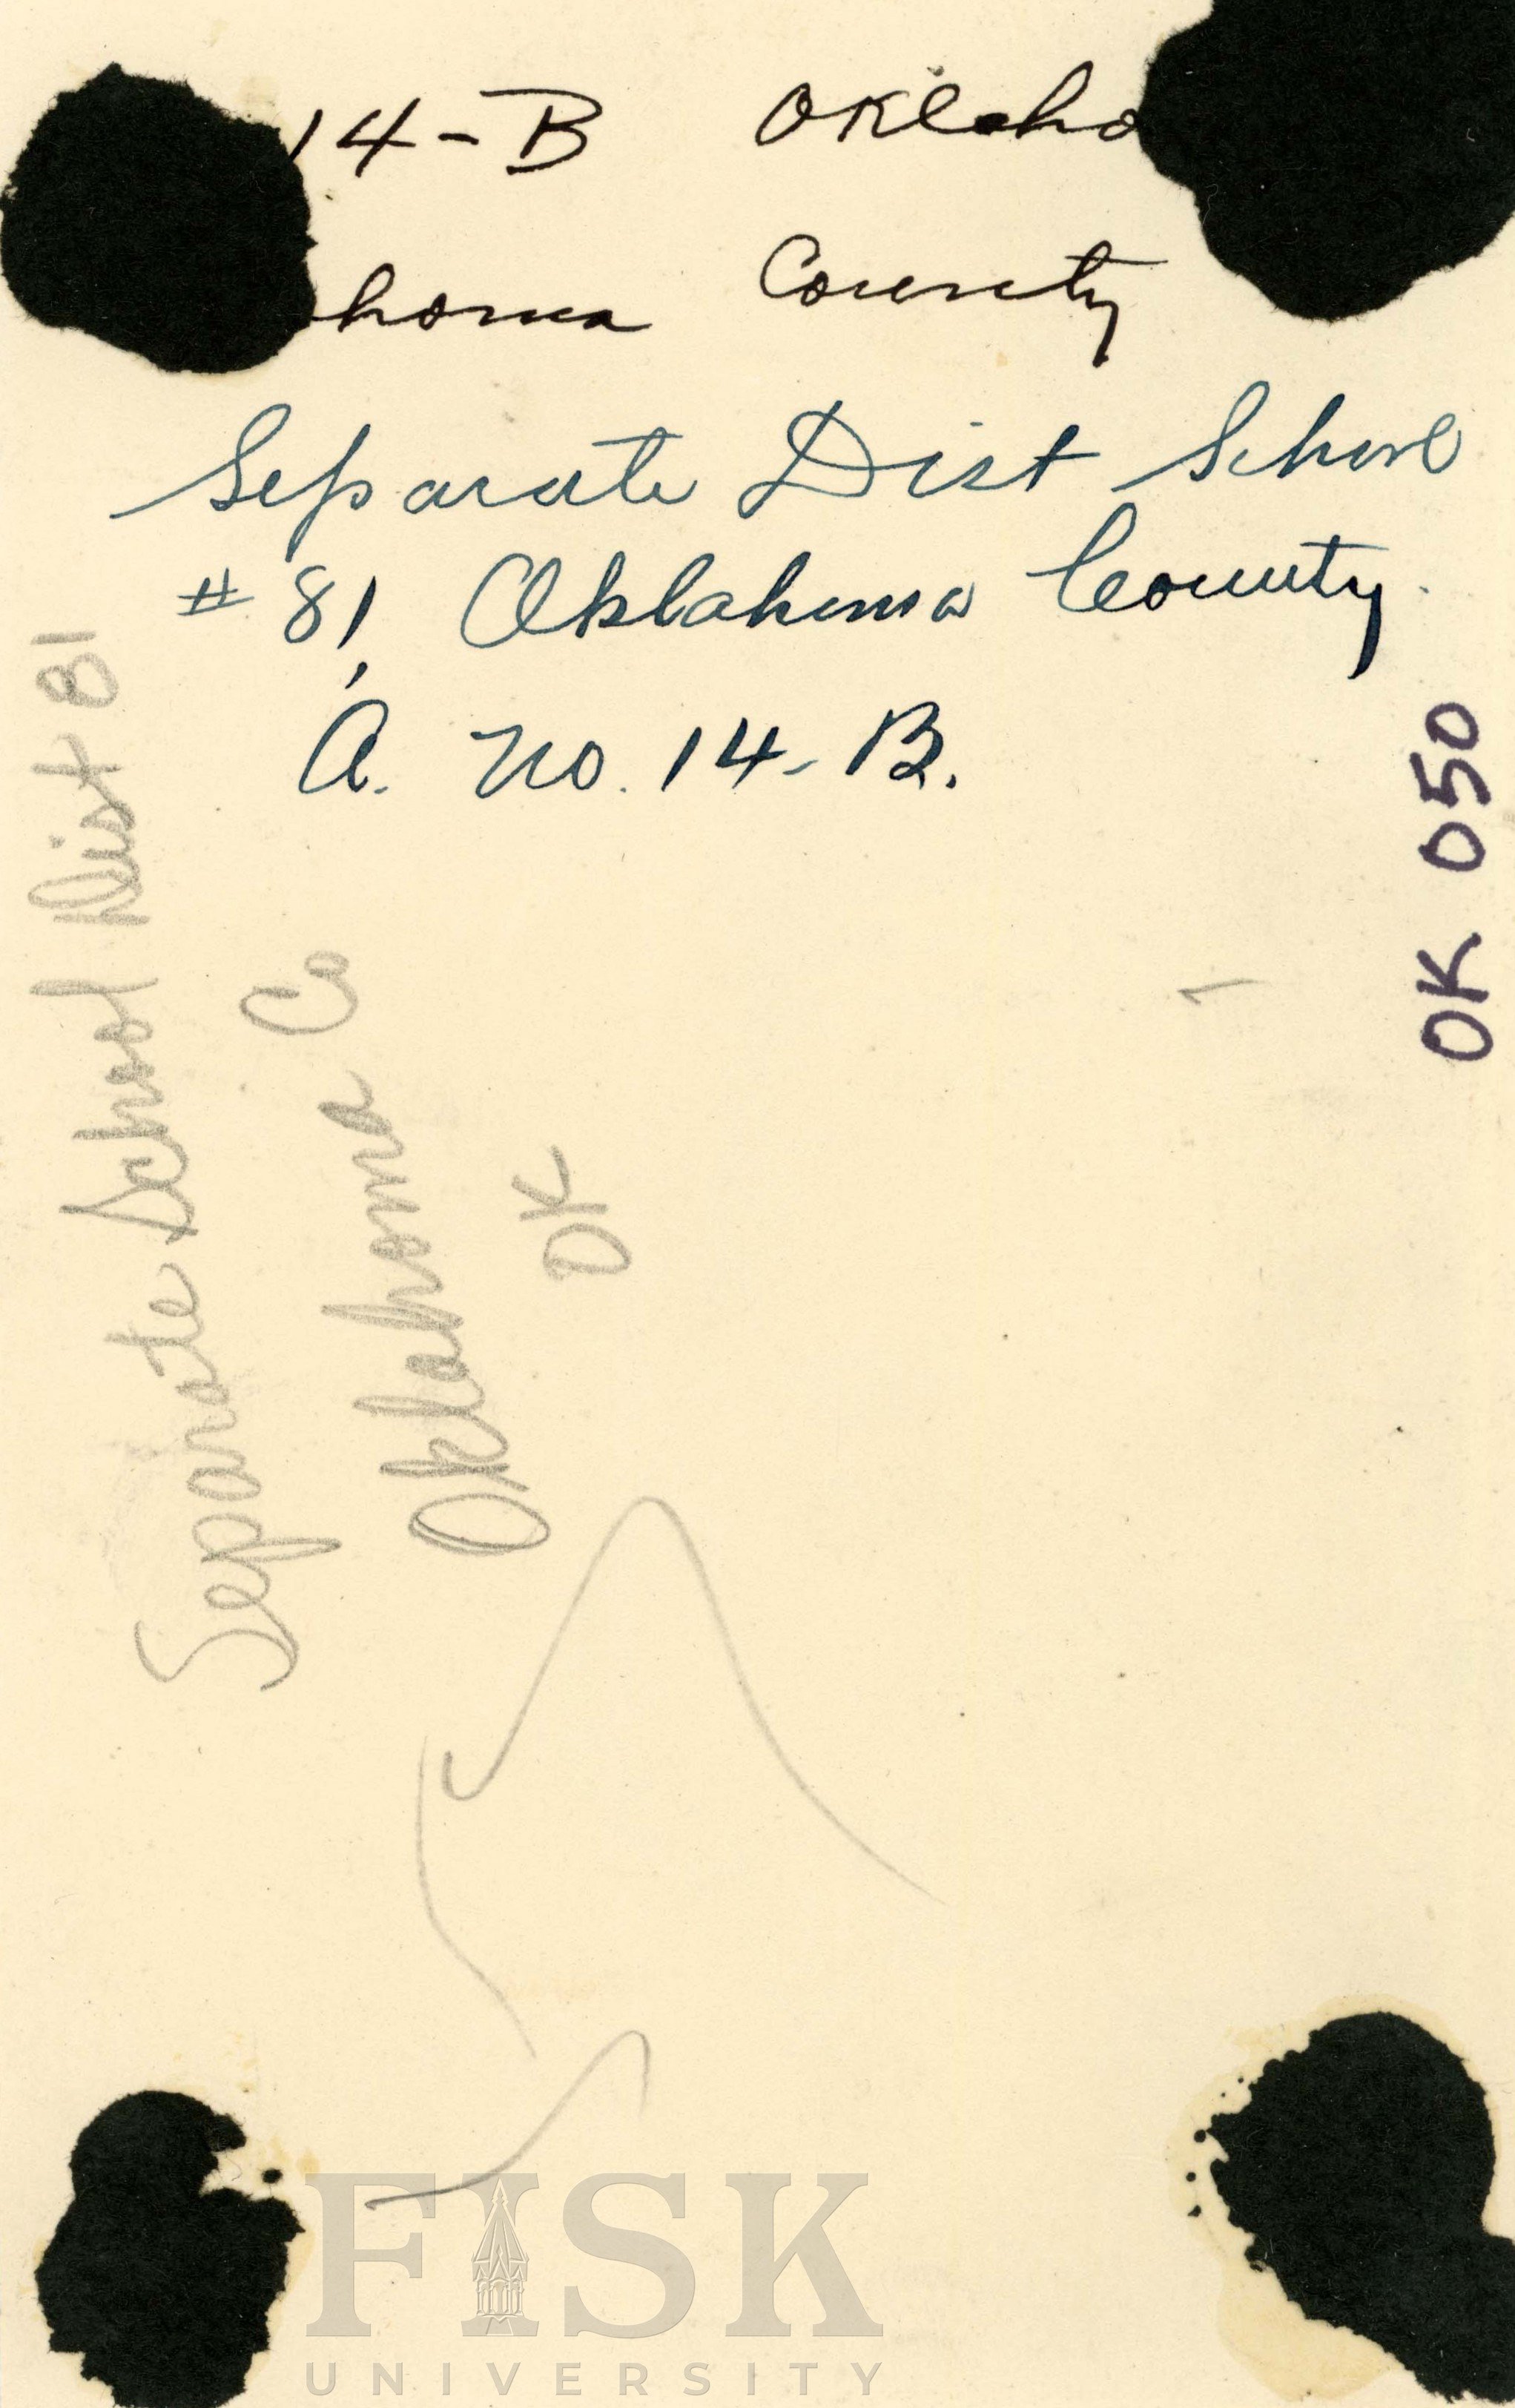 14-B Oklaho
homa County
Separate Dist School
#81, Oklahoma County.
A. No. 14-B.
Separate School Dist 81
Oklahoma Co
OK
OK 050
FISK
UNIVERSITY